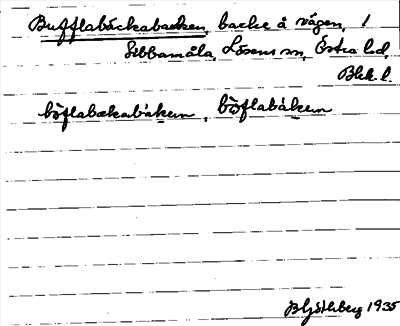 Bufflabäckabacken, backe å vägen, 1
Sebbamåla, Lösens sn, Östra hd,
Blek. l.
böflabækabákεn, böflabákεn
B Göthberg 1935